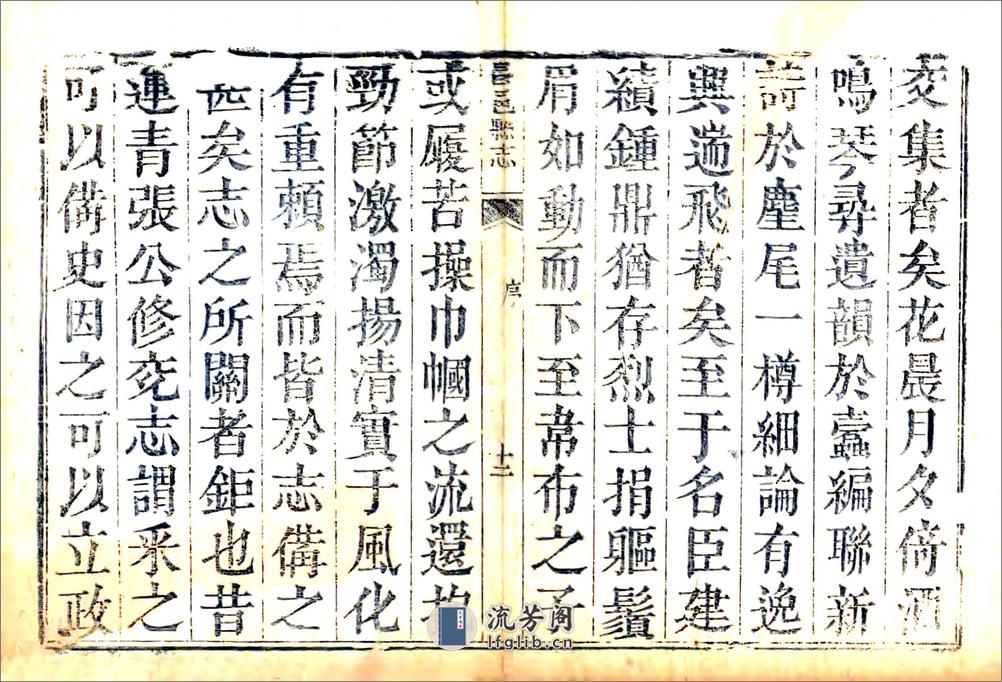 交集者矣花晨月夕倚酒
鳴琴尋遺韻於蠹編聯新
詩於麈尾一樽細論有逸
興遄飛者矣至于名臣建
績鍾鼎猶存烈士捐軀鬚
眉如動而下至韋布之子
邑縣志
序
十二
或履苦操巾幗之流還抱
勁節激濁揚清實于風化
有重頼焉而皆於志備之
矣志之所關者鉅也昔
運青張公修兗志謂采之
可以備史因之可以立政
流芳阁
lfglib.cn